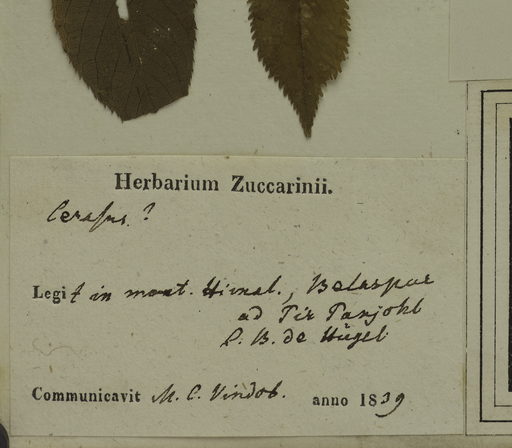 Herbarium Zuccarinii.
Cerasus. ?
Legit in mont. Himal., Belaspur
ad Pir Panjohl
L. B. de Hügel
Communicavit M. C. Vindob. anno 1839